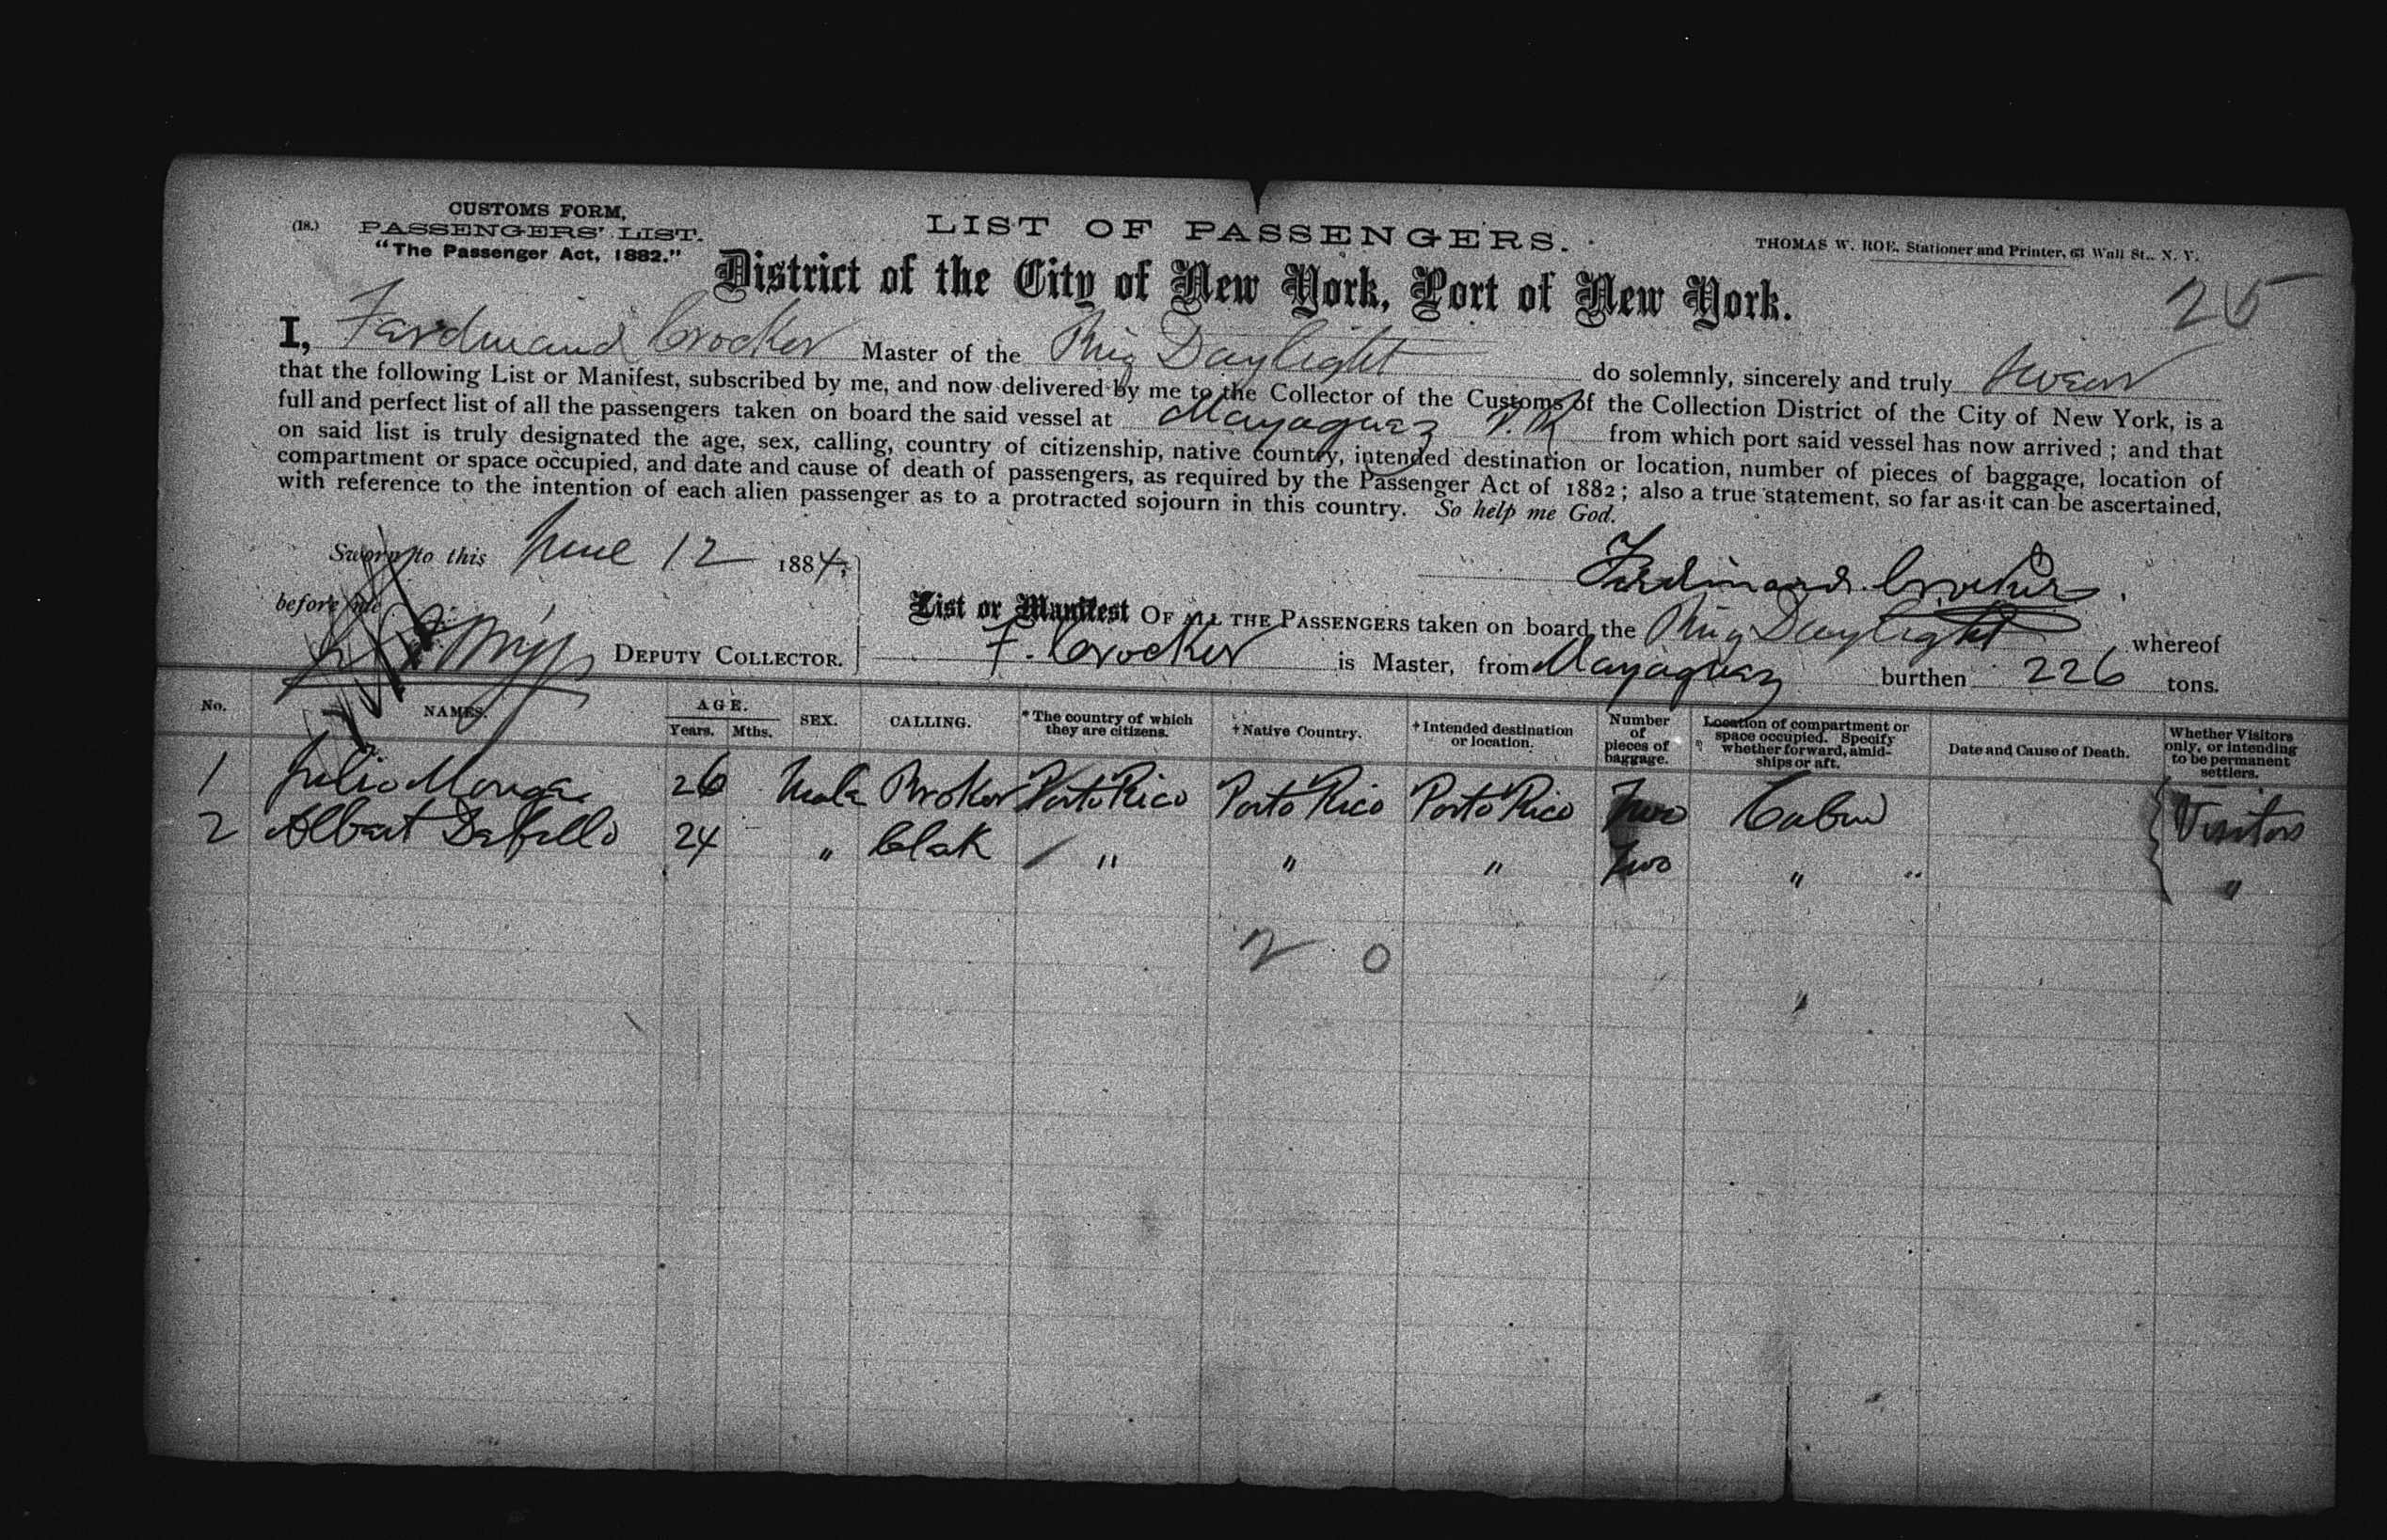 CUSTOMS FORM,
(18.) PASSENGERS' LIST.
"The Passenger Act, 1882."
LIST OF PASSENGERS.
THOMAS W. ROE, Stationer and Printer, 63 Wall St., N. Y.
District of the City of New York, Port of New York.
25
I, Ferdinand Crocker Master of the Brig Daylight do solemnly, sincerely and truly swear
that the following List or Manifest, subscribed by me, and now delivered by me to the Collector of the Customs of the Collection District of the City of New York, is a
full and perfect list of all the passengers taken on board the said vessel at Mayaguez P.R from which port said vessel has now arrived; and that
on said list is truly designated the age, sex, calling, country of citizenship, native country, intended destination or location, number of pieces of baggage, location of
compartment or space occupied, and date and cause of death of passengers, as required by the Passenger Act of 1882; also a true statement, so far as it can be ascertained,
with reference to the intention of each alien passenger as to a protracted sojourn in this country. So help me God.
Sworn to this June 12 1884,
Ferdinand Crocker
before me
DEPUTY COLLECTOR.
List or Manifest OF ALL THE PASSENGERS taken on board the Brig Daylight whereof
F. Crocker is Master, from Mayaguez burthen 226 tons.
No. NAMES. AGE. Years. Mths. SEX. CALLING. *The country of which they are citizens. †Native Country. †Intended destination or location. Number of pieces of baggage. Location of compartment or space occupied. Specify whether forward, amidships or aft. Date and Cause of Death. Whether Visitors only, or intending to be permanent settlers.
1 Julio 26 Male Broker Porto Rico Porto Rico Porto Rico Two Cabin Visitors
2 Albert 24 " Clerk " " " Two " "
2 0